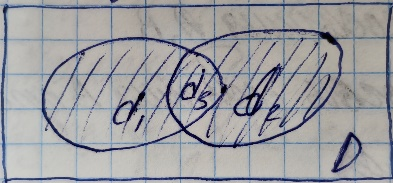 d₁ d₃ d₂
D